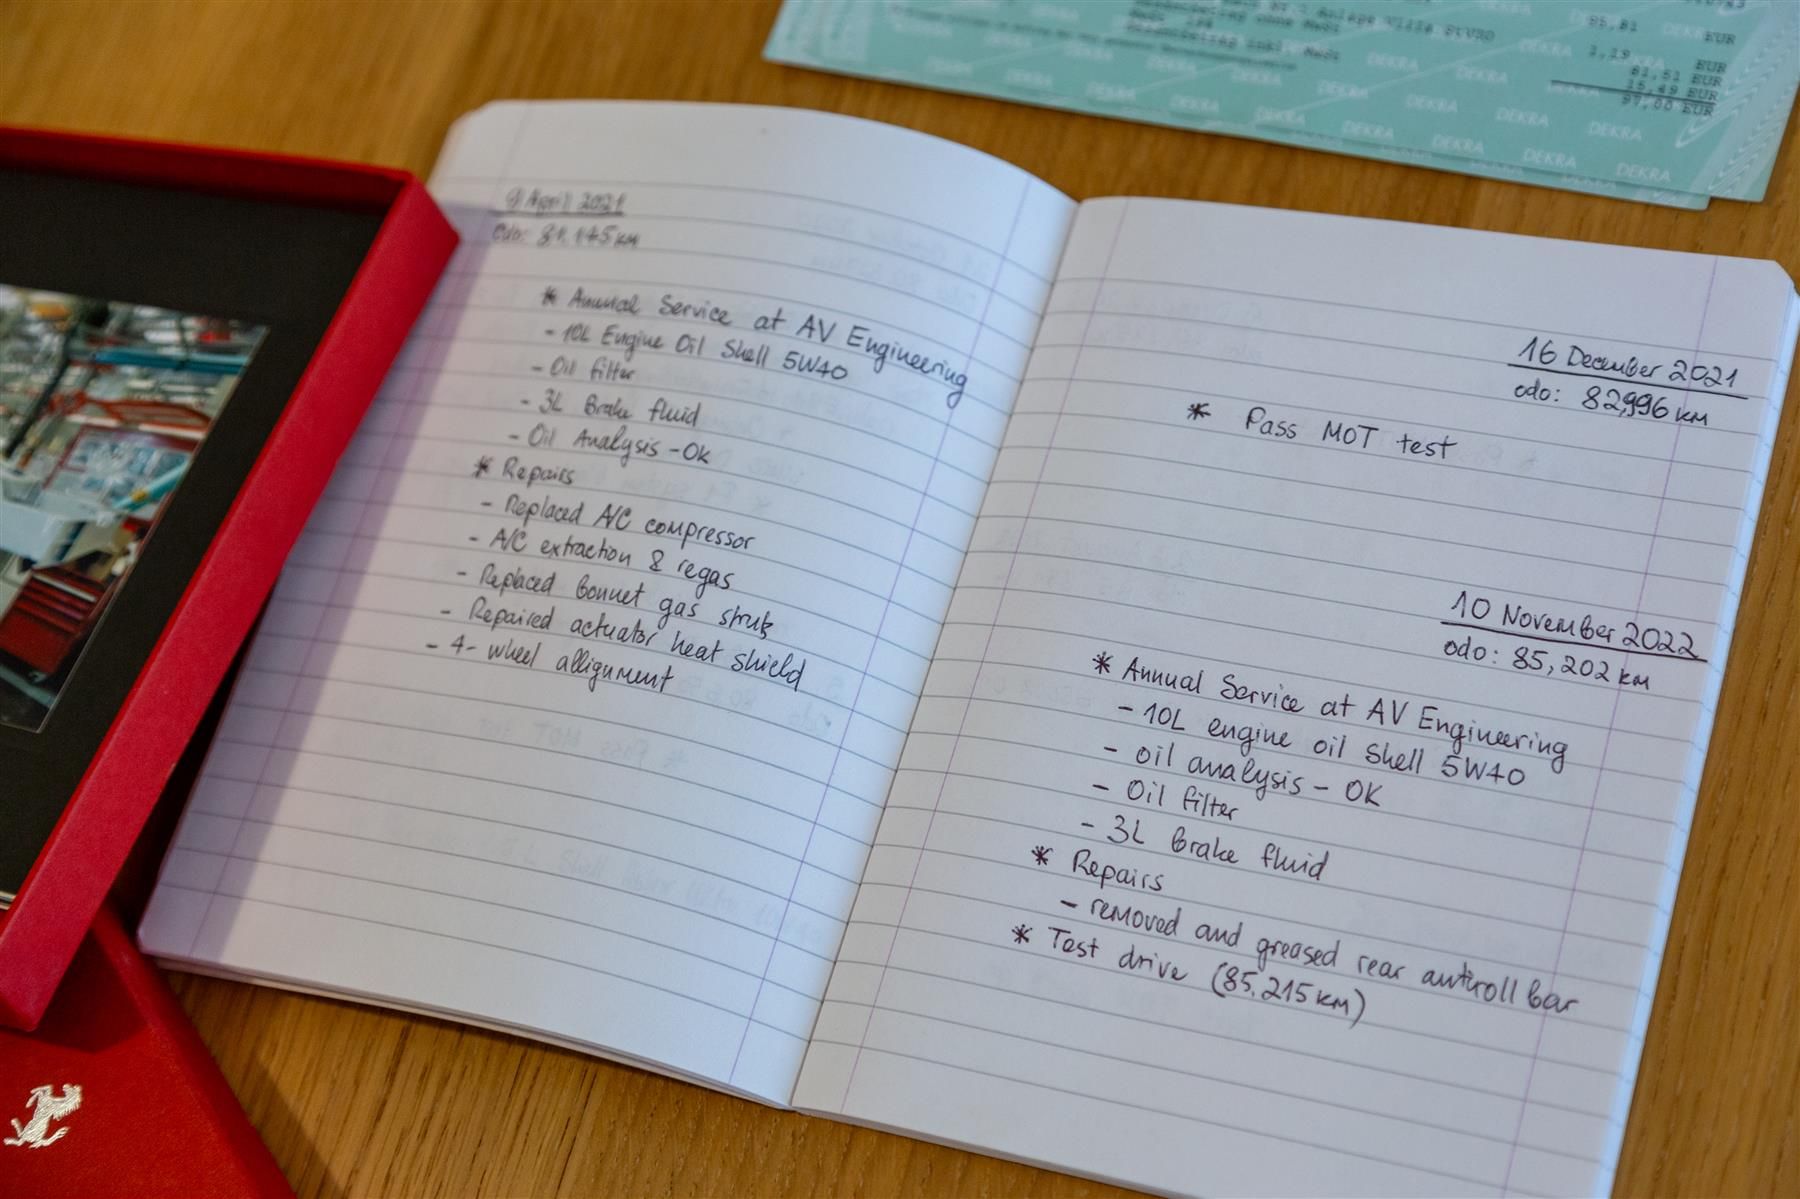 9 April 2021
odo: 81,145 km
* Annual Service at AV Engineering
- 10L Engine Oil Shell 5W40
- Oil filter
- 3L Brake fluid
- Oil Analysis - Ok
* Repairs
- Replaced A/C compressor
- A/C extraction & regas
- Replaced bonnet gas struts
- Repaired actuator heat shield
- 4-wheel allignment
16 December 2021
odo: 82,996 km
* Pass MOT test
10 November 2022
odo: 85,202 km
* Annual Service at AV Engineering
- 10L engine oil Shell 5W40
- oil analysis - OK
- Oil filter
- 3L Brake fluid
* Repairs
- removed and greased rear antiroll bar
* Test drive (85,215 km)
95,81 EUR
1,19 EUR
81,51 EUR
15,49 EUR
97,00 EUR
DEKRA
DEKRA
DEKRA
DEKRA
DEKRA
DEKRA